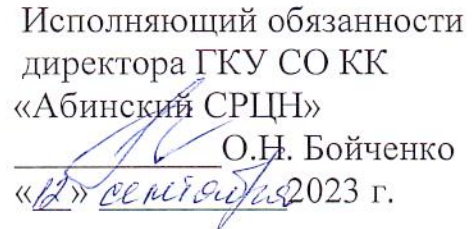 Исполняющий обязанности
директора ГКУ СО КК
«Абинский СРЦН»
О.Н. Бойченко
«12» сентября 2023 г.